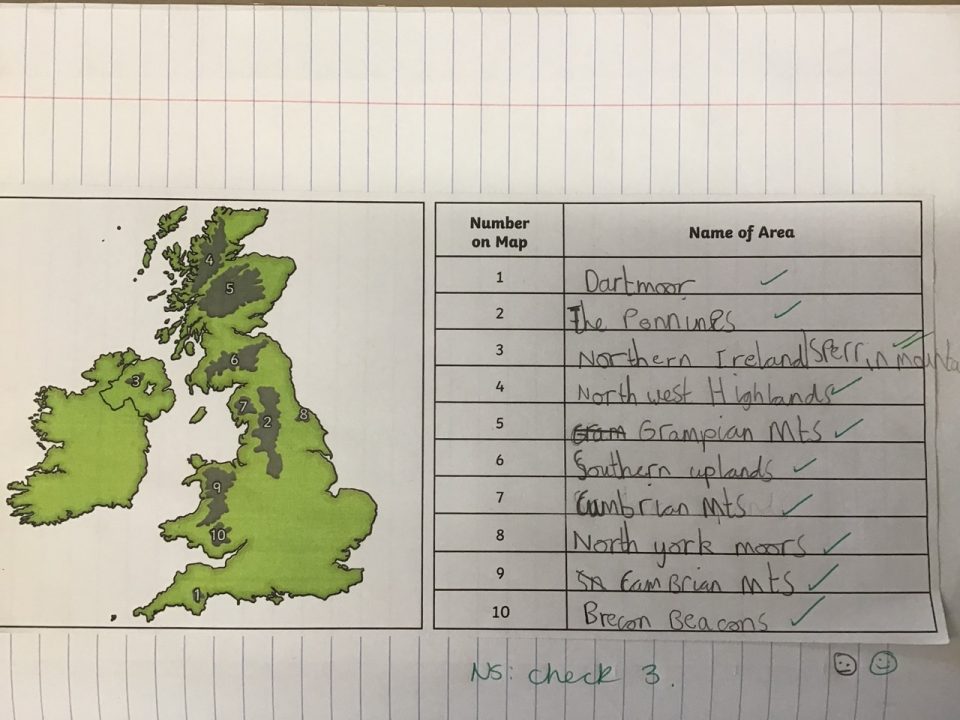 4
5
6
3
7
2
8
9
10
1
Number on Map Name of Area
1 Dartmoor
2 The Pennines
3 Northern Ireland Sperrin mounta
4 North west Highlands
5 Gram Grampian Mts
6 Southern uplands
7 Cumbrian Mts
8 North york moors
9 CamBrian Mts
10 Brecon Beacons
NS: check 3.